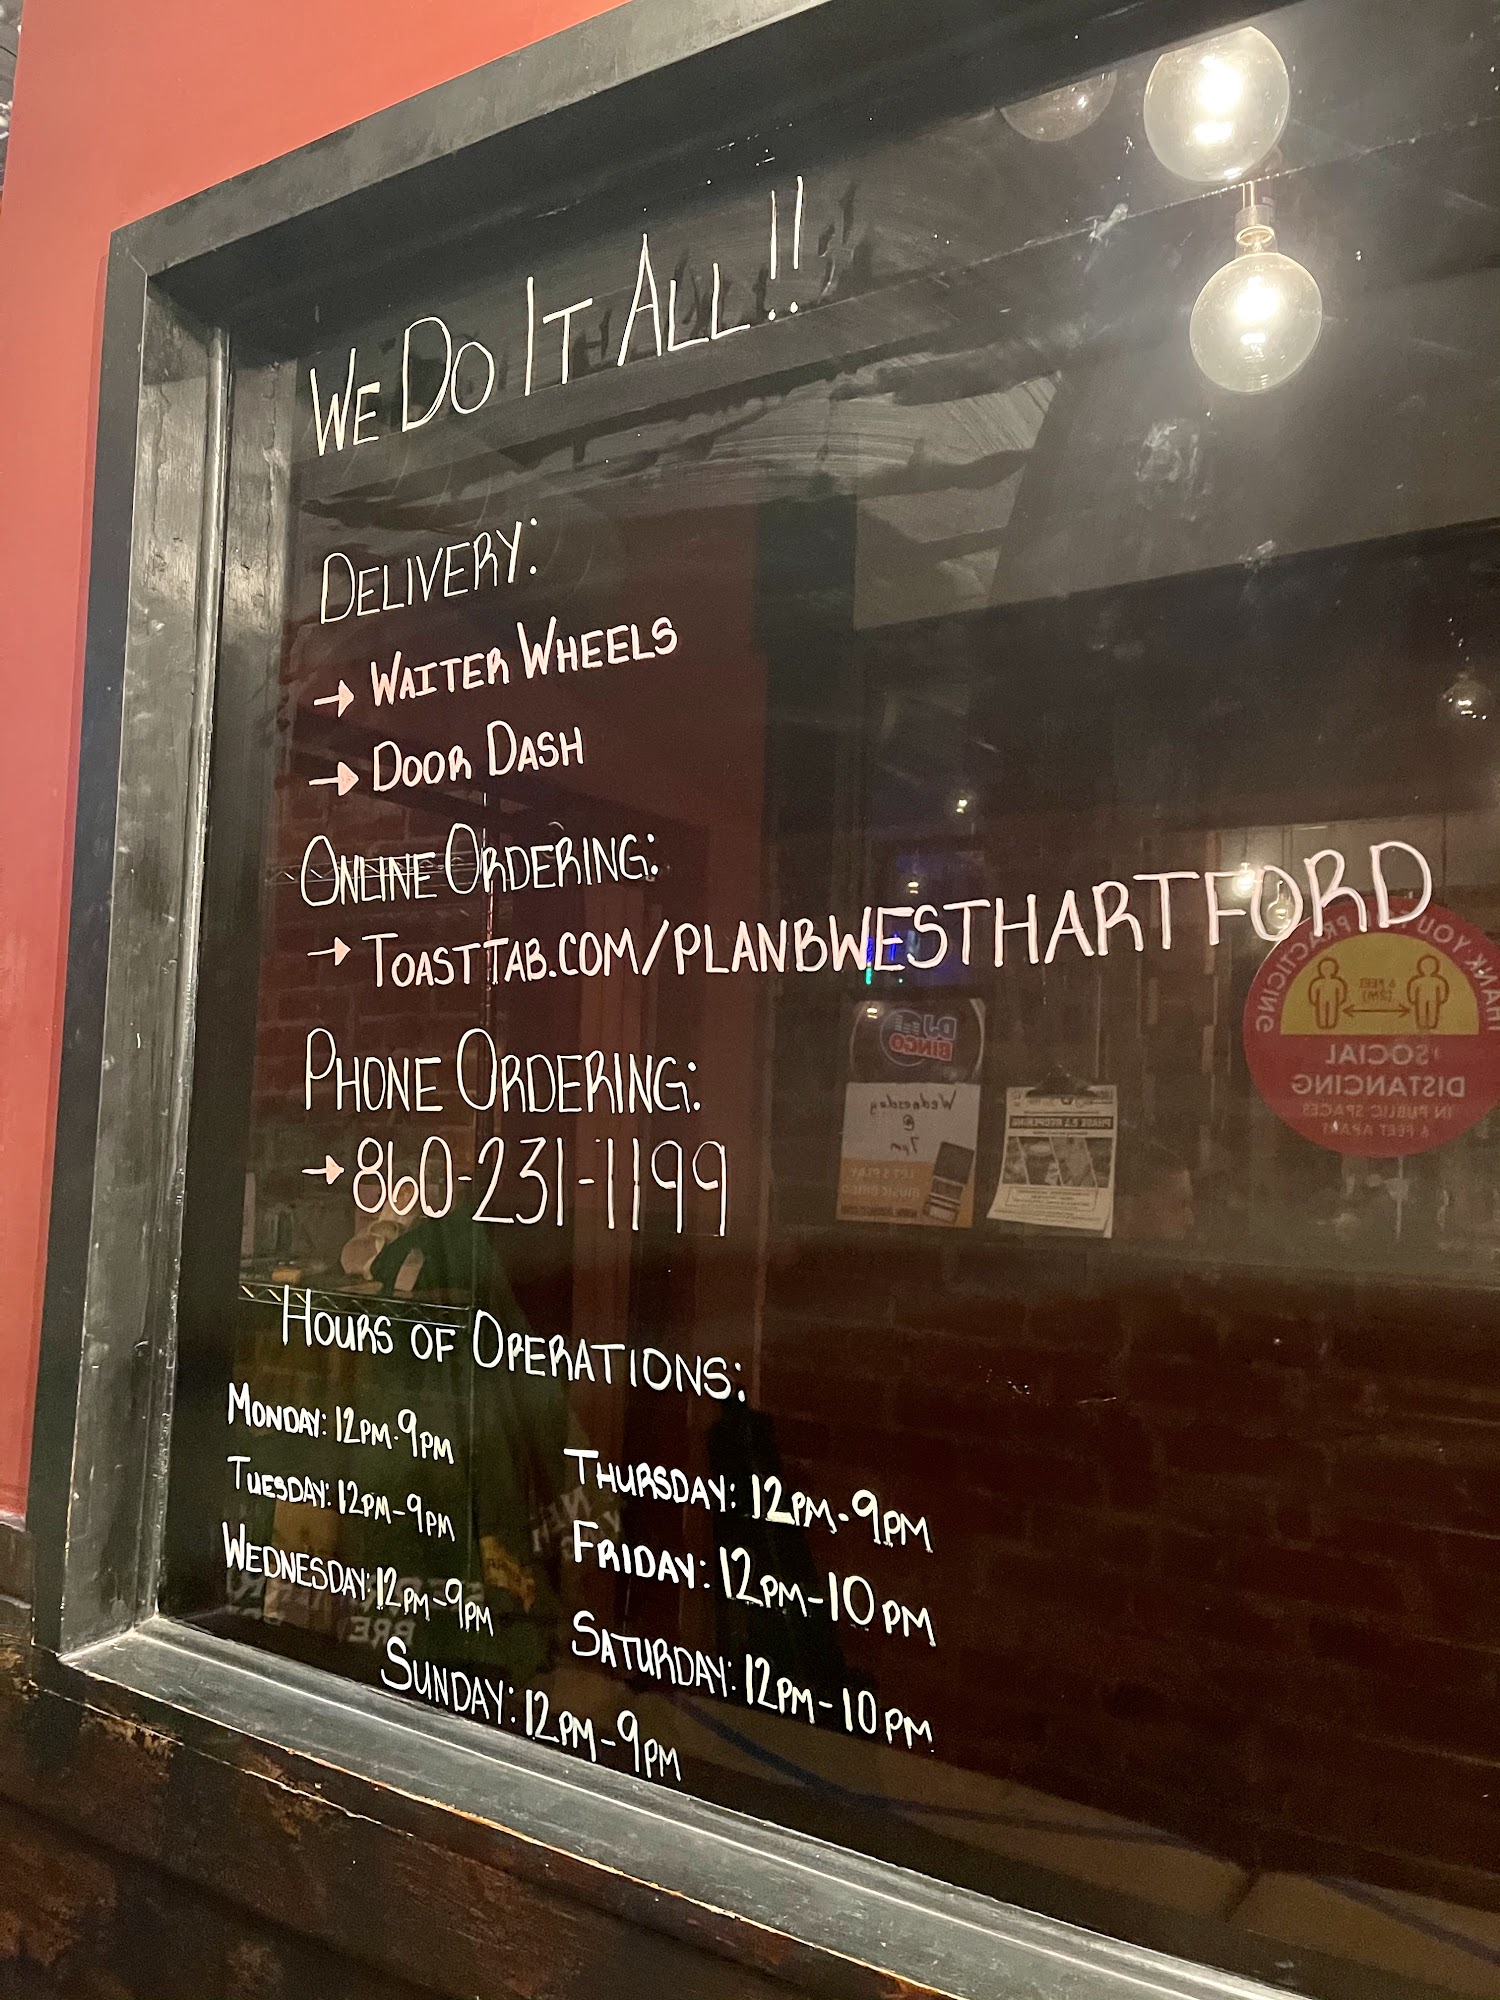 WE DO IT ALL!!
DELIVERY:
→ WAITER WHEELS
→ DOOR DASH
ONLINE ORDERING:
→ TOASTTAB.COM/PLANBWESTHARTFORD
PHONE ORDERING:
→ 860-231-1199
HOURS OF OPERATIONS:
MONDAY: 12PM-9PM
TUESDAY: 12PM-9PM
WEDNESDAY: 12PM-9PM
THURSDAY: 12PM-9PM
FRIDAY: 12PM-10PM
SATURDAY: 12PM-10PM
SUNDAY: 12PM-9PM
DJ
BINGO
Wednesday
@
7pm
LET'S PLAY
MUSIC BINGO
THANK YOU PRACTICING
6 FEET
(2M)
SOCIAL
DISTANCING
IN PUBLIC SPACES
6 FEET APART